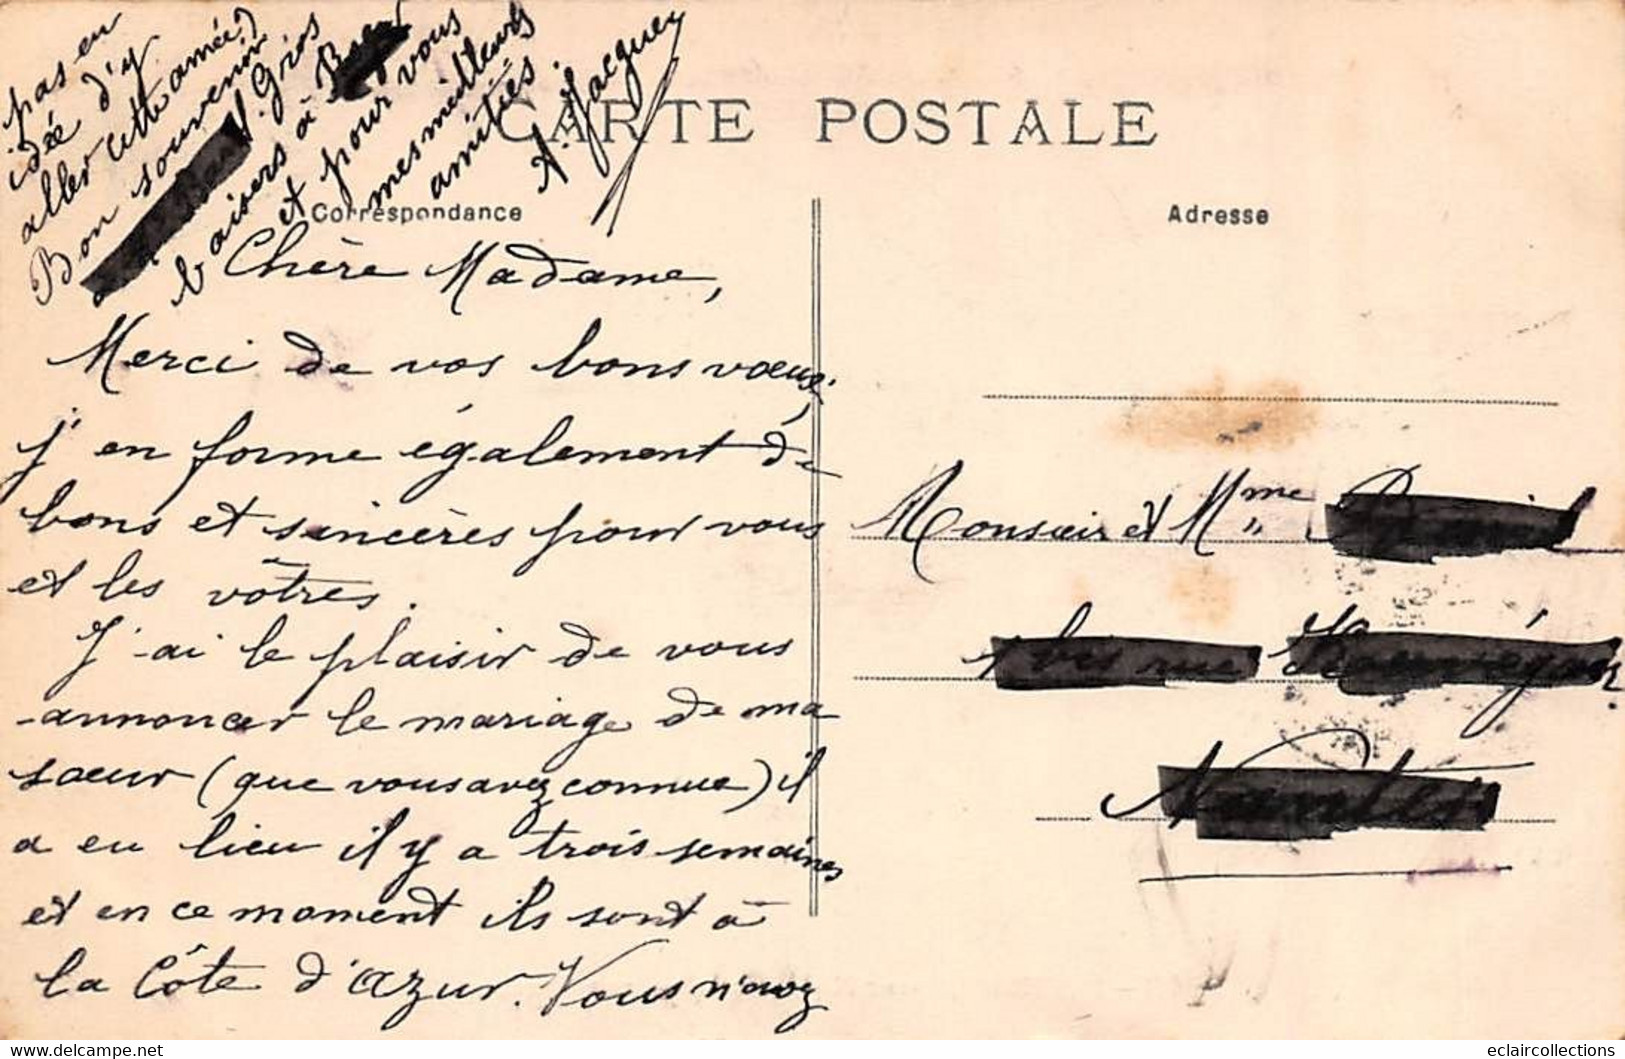 CARTE POSTALE
Correspondance
Adresse
Chère Madame,
Merci de vos bons voeux,
j'en forme également de
bons et sincères pour vous
et les vôtres.
J'ai le plaisir de vous
annoncer le mariage de ma
soeur (que vous avez connue) il
a eu lieu il y a trois semaines
et en ce moment ils sont à
la Côte d'azur. Vous n'avez
pas eu
idée d'y
aller cette année?
Bon souvenir
à M. Gros
baisers à
et pour vous
mes meilleurs
amitiés.
A. Jacquey
Monsieur et Mme
bis rue
Nantes
eclaircollections